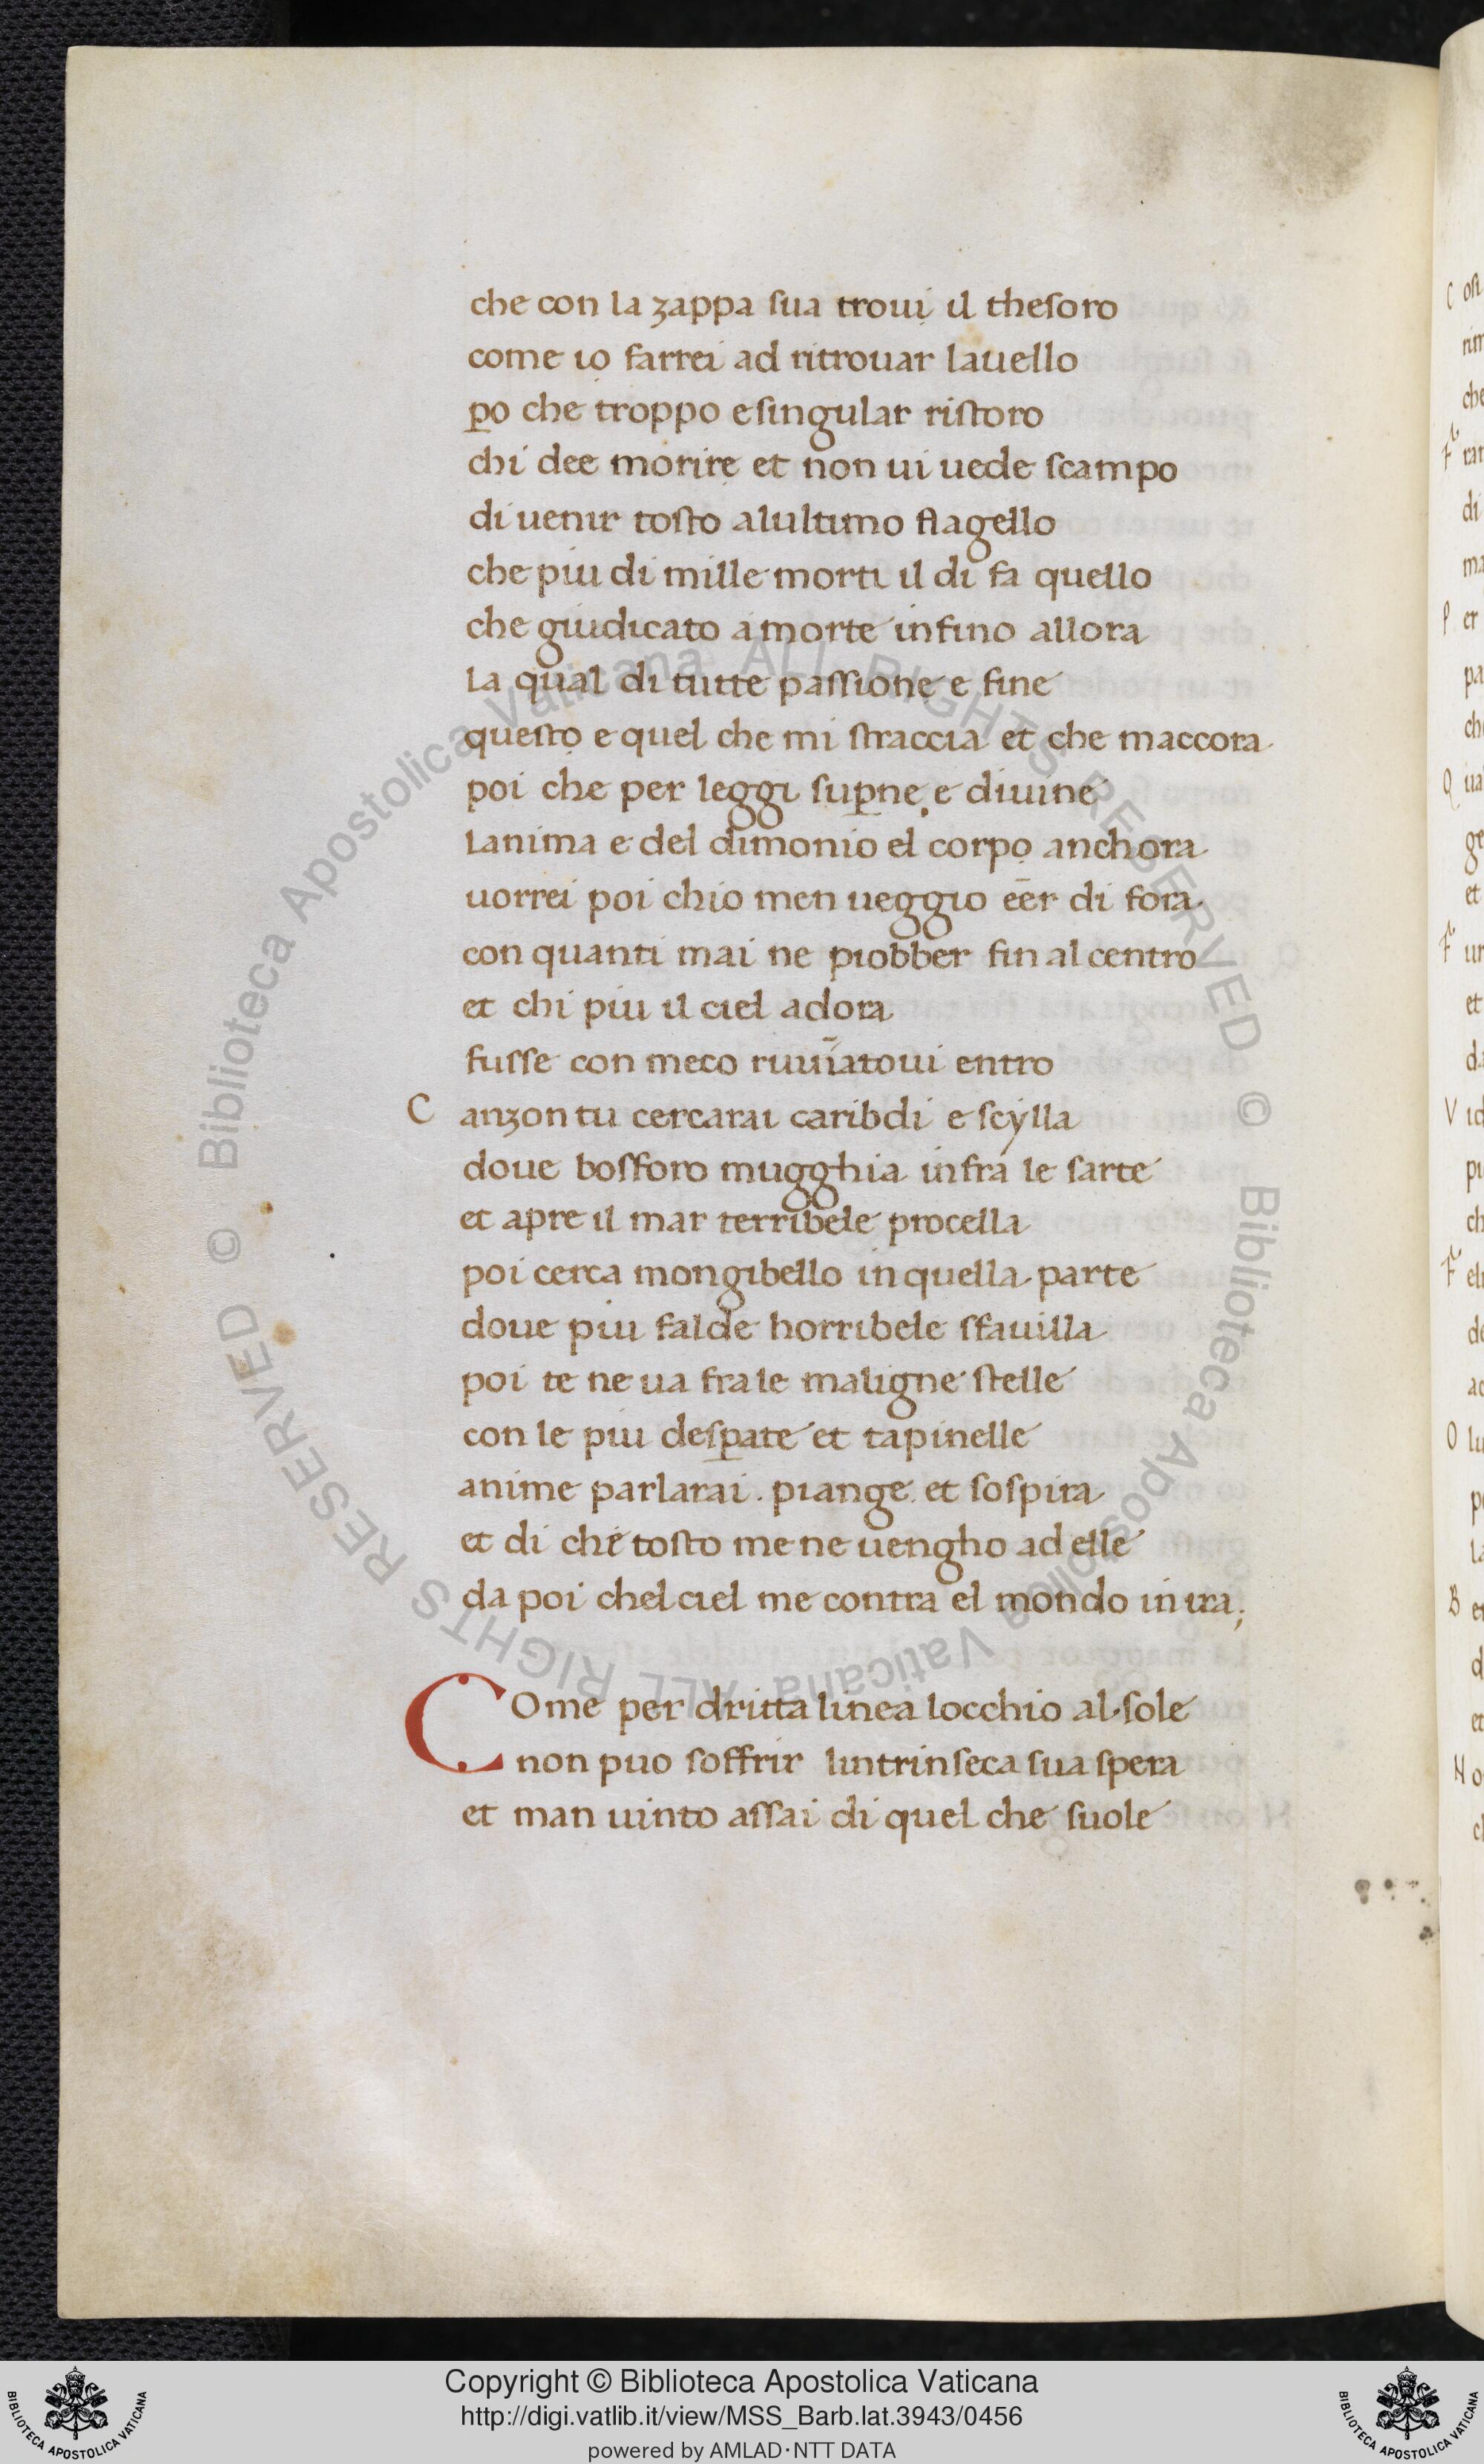 che con la zappa sua troui il thesoro
come io farrei ad ritrouar lauello
ꝑo che troppo e singular ristoro
chi dee morire et non ui uede scampo
di uenir tosto alultimo flagello
che piu di mille morti il di fa quello
che giudicato a morte infino allora
La qual di tutte passione e fine
questo e quel che mi straccia et che maccora
poi che per leggi suꝑne e diuine
Lanima e del dimonio el corpo anchora
uorrei poi chio men ueggio eēr di fora
con quanti mai ne piobber fin al centro
et chi piu il ciel adora
fusse con meco ruuīatoui entro
C anzon tu cercarai caribdi e scẏlla
doue bosforo mugghia infra le sarte
et apre il mar terribele procella
poi cerca mongibello in quella parte
doue piu falde horribele sfauilla
poi te ne ua fra le maligne stelle
con le piu desꝑate et tapinelle
anime parlarai . piange et sospira
et di che tosto me ne uengho ad elle
da poi chel ciel me contra el mondo in ira;
COme per dritta linea locchio al sole
non puo soffrir lintrinseca sua spera
et man uinto assai di quel che suole
Copyright © Biblioteca Apostolica Vaticana
http://digi.vatlib.it/view/MSS_Barb.lat.3943/0456
powered by AMLAD·NTT DATA
BIBLIOTECA APOSTOLICA VATICANA
BIBLIOTECA APOSTOLICA VATICANA
© Biblioteca Apostolica Vaticana ALL RIGHTS RESERVED
© Biblioteca Apostolica Vaticana ALL RIGHTS RESERVED